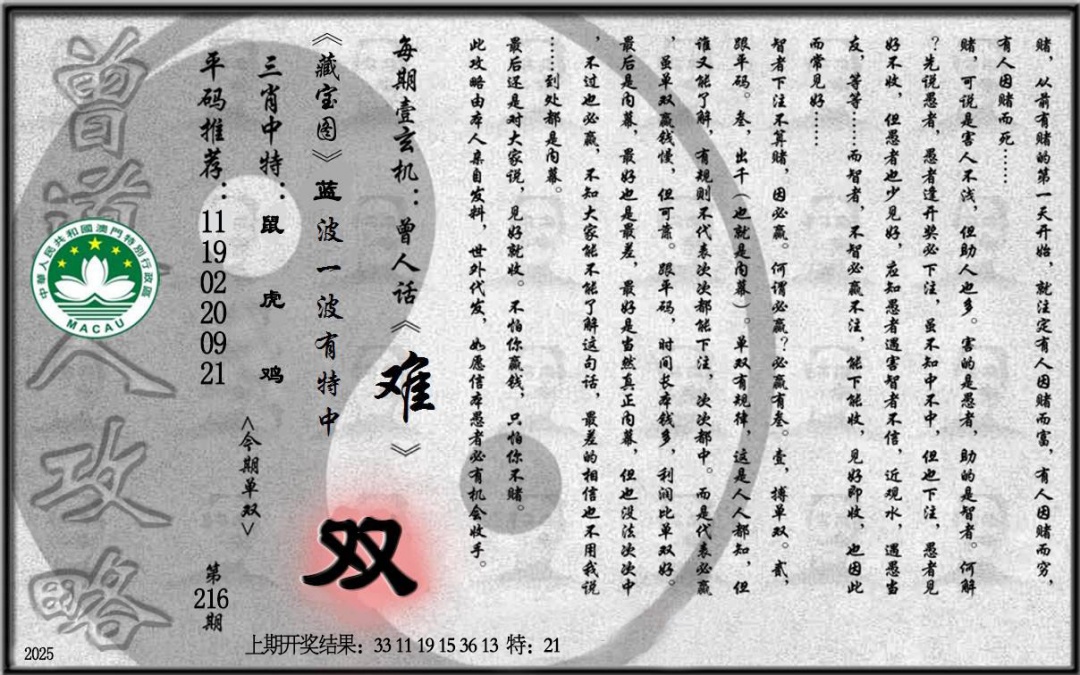 赌，从前有赌的第一天开始，就注定有人因赌而富，有人因赌而穷，
有人因赌而死……
赌，可说是害人不浅，但助人也多。害的是愚者，助的是智者。何解
？先说愚者，愚者逢开奖必下注，虽不知中不中，但也下注，愚者见
好不收，但愚者也少见好，应知愚者遇害智者不信，近观水，遇愚当
友，等等……而智者，不智必赢不注，能下能收，见好即收，也因此
而常见好……
智者下注不算赌，因必赢。何谓必赢？必赢有叁。壹，搏单双。贰，
跟平码。叁，出千（也就是内幕）。单双有规律，这是人人都知，但
谁又能了解，有规则不代表次次都能下注，次次都中。而是代表必赢
，虽单双赢钱慢，但可靠。跟平码，时间长本钱多，利润比单双好。
最后是内幕，最好也是最差，最好是当然真正内幕，但也没法次次中
，不过也必赢，不知大家能不能了解这句话，最差的相信也不用我说
……到处都是内幕。
最后还是对大家说，见好就收。不怕你赢钱，只怕你不赌。
此攻略由本人亲自发料，世外代发，如愿信本愚者必有机会收手。
每期壹玄机：曾人话《难》
《藏宝图》蓝波一波有特中
双
三肖中特：鼠 虎 鸡
平码推荐：11 19 02 20 09 21
<今期单双>
第216期
曾道人攻略
中華人民共和國澳門特別行政區
MACAU
上期开奖结果：33 11 19 15 36 13 特：21
2025